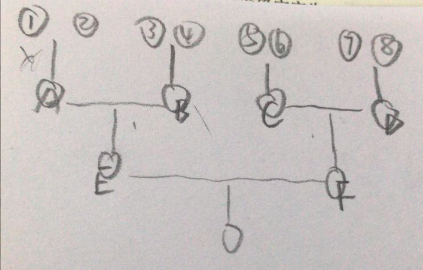 ① ② ③ ④ ⑤ ⑥ ⑦ ⑧
A B C D
E F